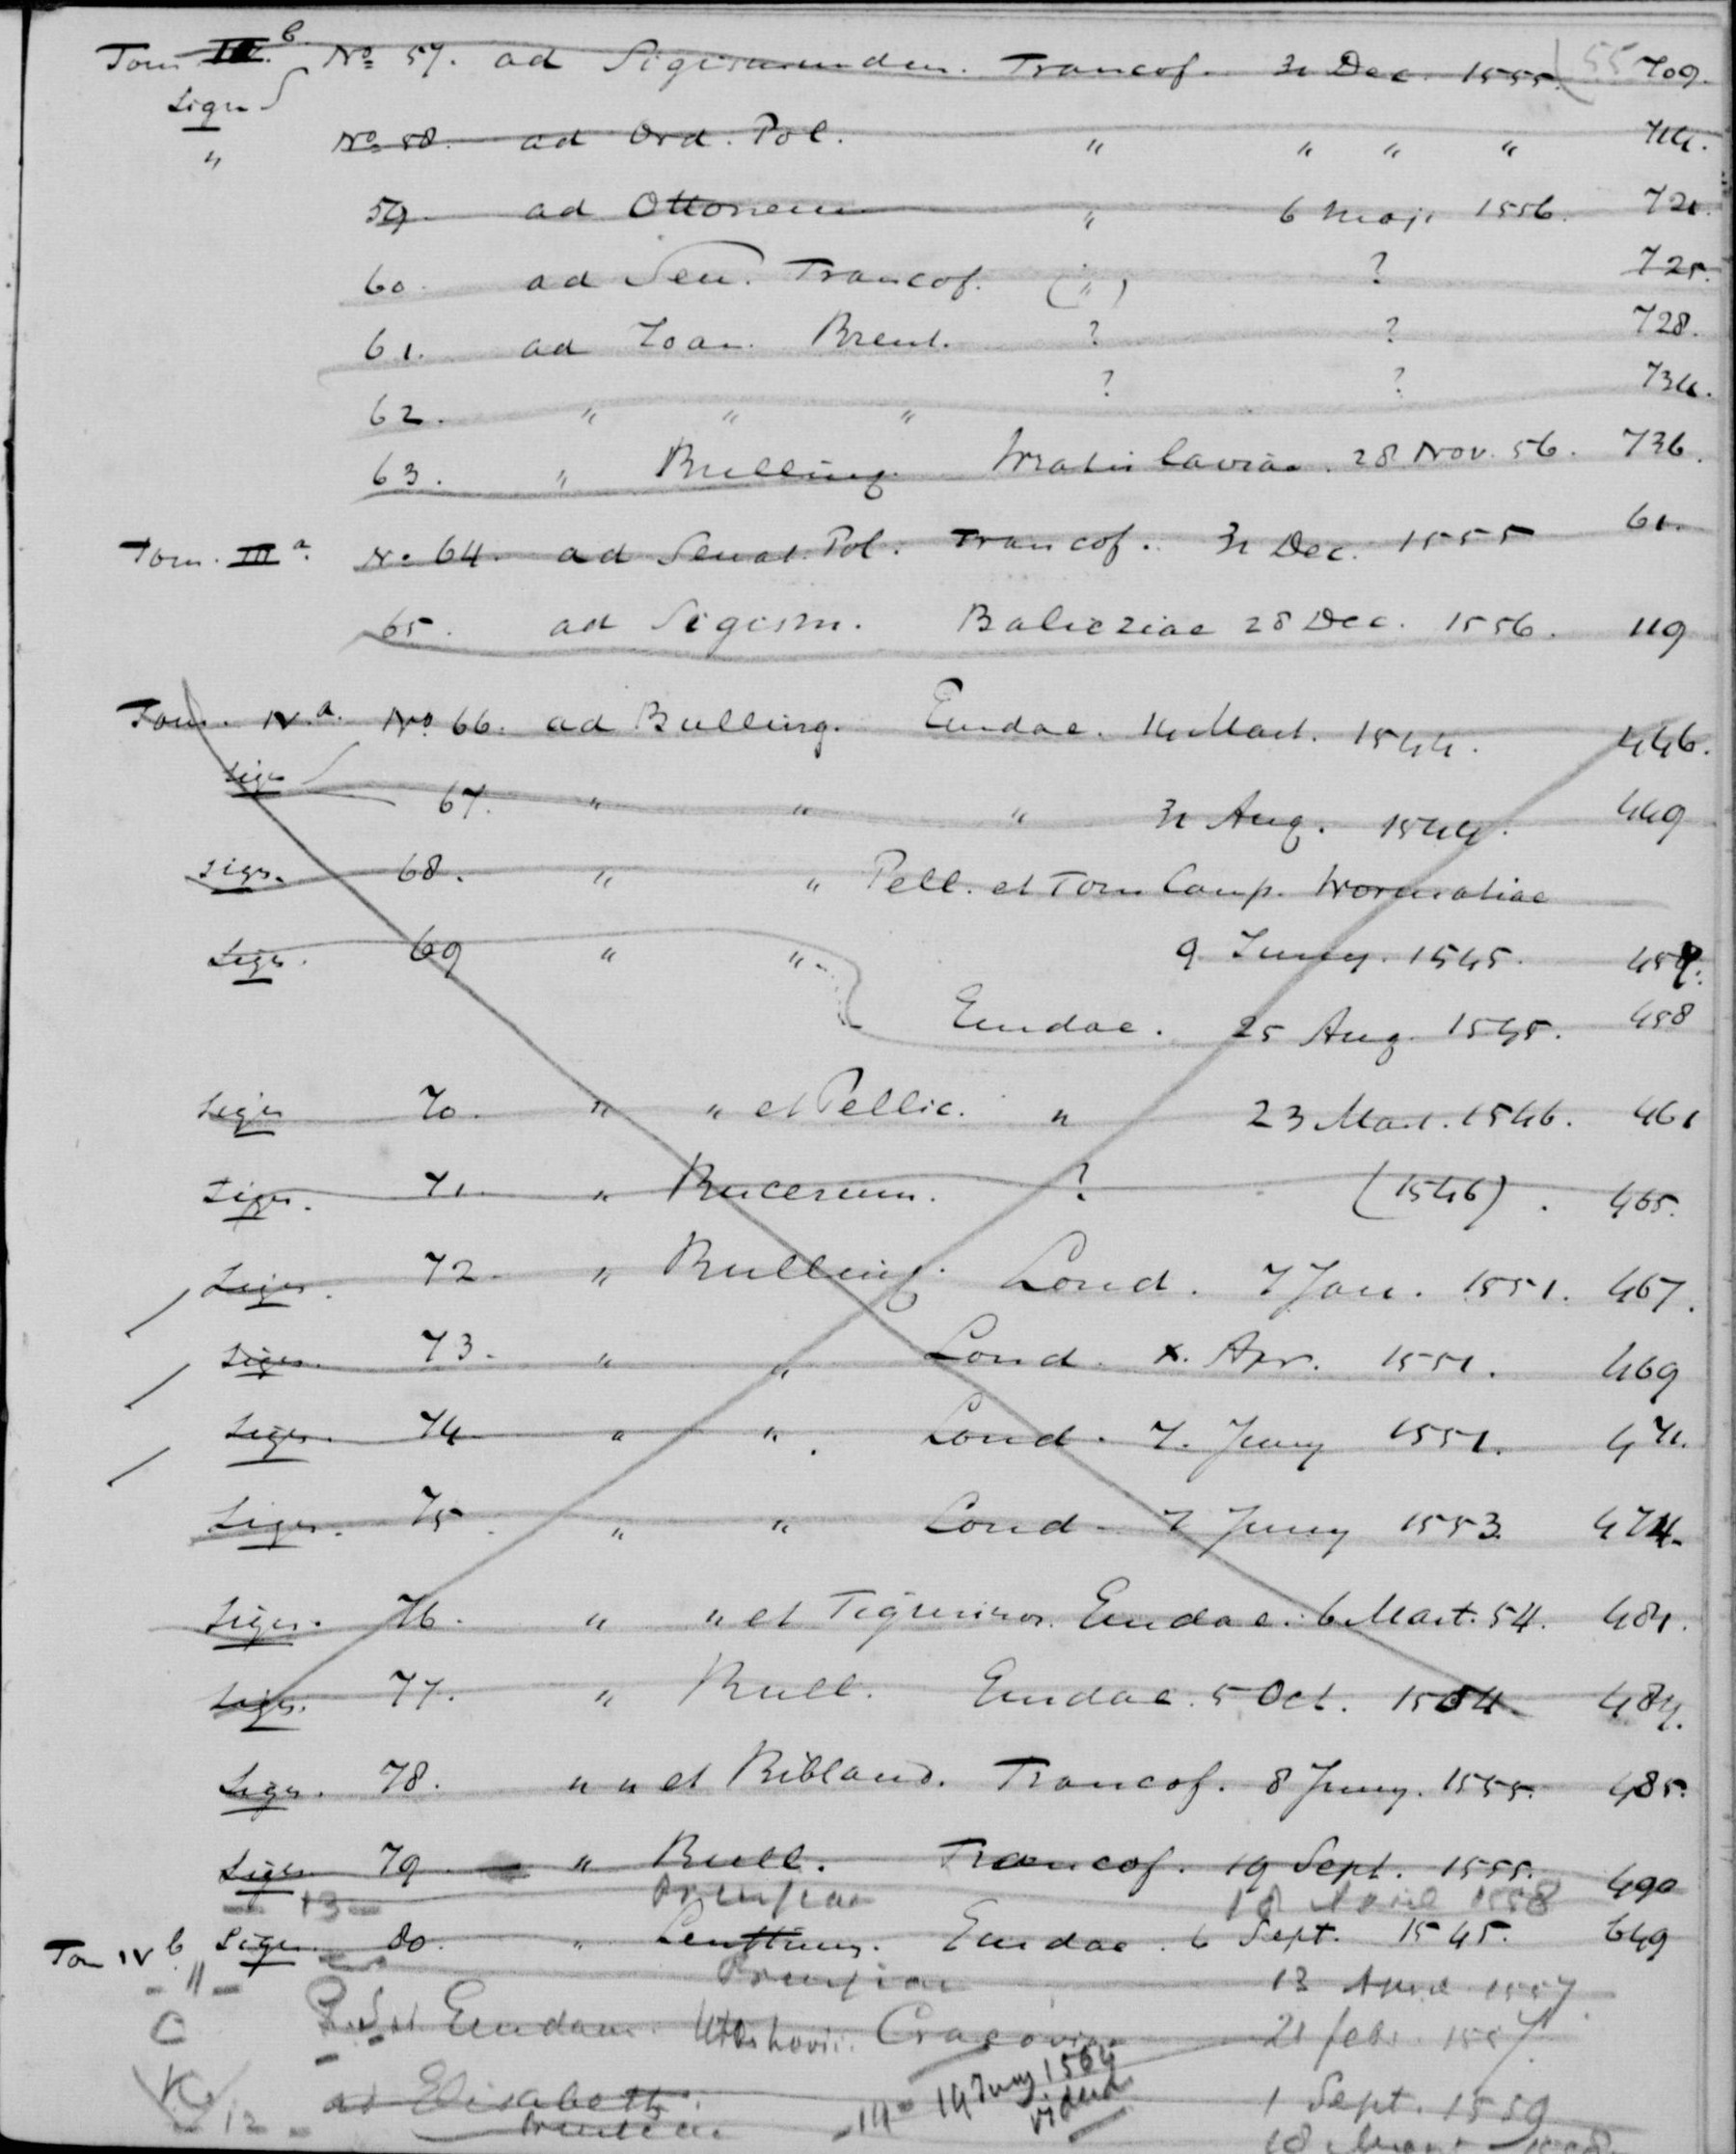 Tom III b. No 57. ad Sigismundum. Francof. 31 Dec. 1555. (55 709.
Sign
" No 58. ad Ord. Pol. " " " " 714.
59. ad Ottonem " 6 Maji 1556. 721.
60. ad Sen. Francof. (") ? 725.
61. ad Joan. Brent. ? ? 728.
62. " " " ? ? 734.
63. " Bulling. Wratislaviae. 28 Nov. 56. 736.
Tom. III a. No 64. ad Senat. Pol. Francof. 31 Dec. 1555 61.
65. ad Sigism. Baliciae 28 Dec. 1556. 119
Tom. IV. a. No 66. ad Bulling. Emdae. 14 Mart. 1544. 446.
Sign 67. " " " 31 Aug. 1544. 449
Sign. 68. " " Pell. et Tom Camp. Wormatiae
Sign. 69 " " 9 Juny. 1545. 457.
Emdae. 25 Aug. 1545. 458
Sign 70. " " et Pellic. " 23 Mart. 1546. 461
Sign. 71. " Bucerum. ? (1546). 465.
Sign. 72. " Bulling. Lond. 7 Jan. 1551. 467.
Sign. 73. " " Lond. x. Apr. 1551. 469
Sign. 74 " ". Lond. 7. Juny 1551. 471.
Sign. 75 " " Lond. 7 Juny 1553. 474.
Sign. 76. " " et Tigurinos. Emdae. 6 Mart. 54. 481.
Sign. 77. " Bull. Emdae. 5 Oct. 1554. 484.
Sign. 78. " " et Bibliand. Francof. 8 Juny. 1555. 485.
Sign. 79. " Bull. Francof. 19 Sept. 1555. 490
- 13 - 18 April 1558
Tom IV b. Sign. 80. " Emdae. 6 Sept. 1545. 649
- 11 - 13 April 1557
C Emdam. Cracoviae 21 febr. 1557.
ad Elisabeth. 14 Juny 1564 1 Sept. 1559
12 -